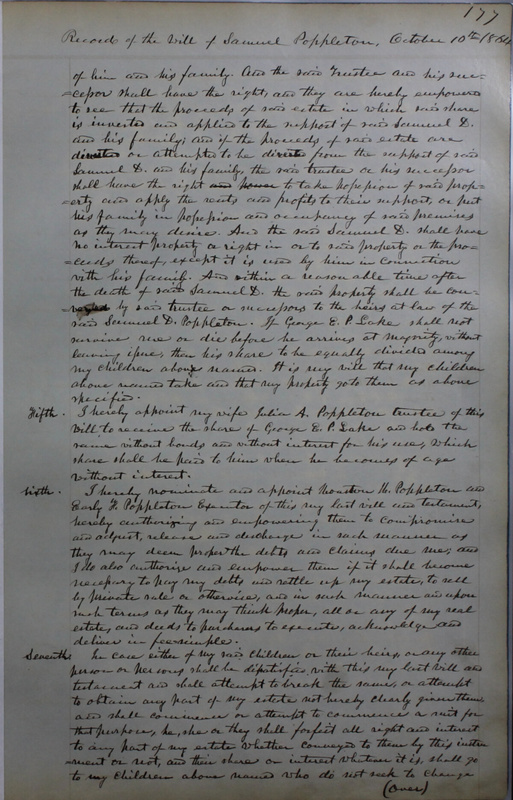 177
Record of the Will of Samuel Poppleton, October 10th 1864
of him and his family. And the said Trustee and his suc-
=cessor shall have the right, and they are hereby empowered
to see that the proceeds of said estate in which said share
is invested and applied to the support of said Samuel D.
and his family; and if the proceeds of said estate are
diverted or attempted to be diverted from the support of said
Samuel D. and his family, the said trustee or his successor
shall have the right and power to take possession of said prop-
=erty and apply the rents and profits to their support, or put
his family in possession and occupancy of said premises
as they may desire. And the said Samuel D. shall have
no interest property or right in or to said property or the pro=
=ceeds thereof, except it is used by him in connection
with his family. And within a reasonable time after
the death of said Samuel D. the said property shall be con-
veyed by said trustee or successors to the heirs at law of the
said Samuel D. Poppleton. If George E. P. Lake shall not
survive me or die before he arrives at majority, without
leaving issue, then his share to be equally divided among
my children above named. It is my will that my children
above named take and that my property go to them as above
specified.
Fifth. I hereby appoint my wife Julia A. Poppleton trustee of this
Will to receive the share of George E. P. Lake and hold the
same without bonds and without interest for his use, which
share shall be paid to him when he becomes of age
without interest.
Sixth. I hereby nominate and appoint Houston H. Poppleton and
Early F. Poppleton Executor of this my last will and testament,
hereby authorizing and empowering them to compromise
and adjust, release and discharge in such manner as
they may deem proper the debts and claims due me, and
I do also authorize and empower them if it shall become
necessary to pay my debts and settle up my estate, to sell
by private sale or otherwise, and in such manner and upon
such terms as they may think proper, all or any of my real
estate, and deeds to purchasers to execute, acknowledge and
deliver in fee simple.
Seventh. In case either of my said children or their heirs, or any other
person or persons shall be dissatisfied with this my last will and
testament and shall attempt to break the same, or attempt
to obtain any part of my estate not hereby clearly given them
and shall commence or attempt to commence a suit for
that purpose, he, she or they shall forfeit all right and interest
to any part of my estate whether conveyed to them by this instru
=ment or not, and their share or interest whatever it is, shall go
to my children above named who do not seek to change
(over)